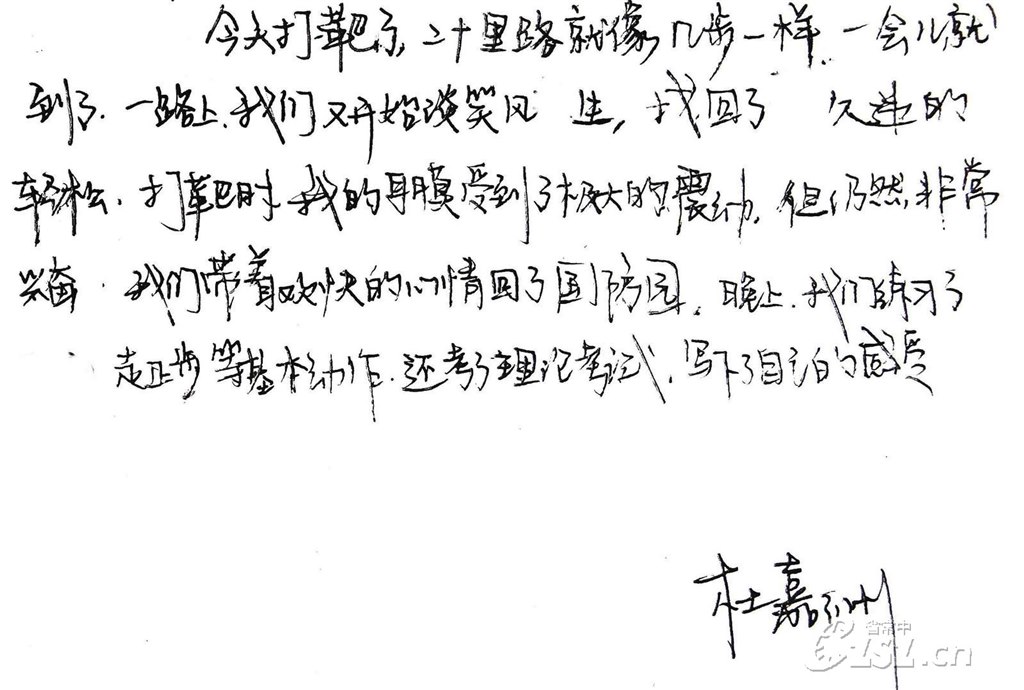 今天打靶了,二十里路就像几步一样,一会儿就
到了.一路上,我们又开始谈笑风生,找回了久违的
轻松.打靶时,我的耳膜受到了极大的震动,但仍然非常
兴奋.我们带着欢快的心情回了国防园,晚上,我们练习了
走正步等基本动作,还考了理论考试,写下了自己的感受
杜嘉
省常中
CSZ.cn